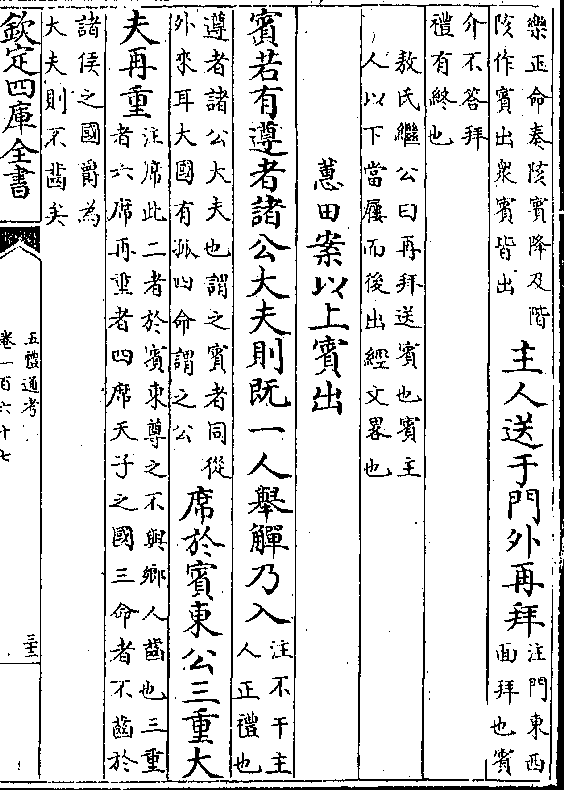 樂正命奏陔賓降及階
陔作賓出衆賓皆出
主人送于門外再拜
注門東西
面拜也賓
介不答拜
禮有終也
敖氏繼公曰再拜送賓也賓主
人以下當屨而後出經文畧也
蕙田案以上賓出
賓若有遵者諸公大夫則既一人舉觶乃入
注不干主
人正禮也
遵者諸公大夫也謂之賓者同從
外來耳大國有孤四命謂之公
席於賓東公三重大
夫再重
注席此二者於賓東尊之不與鄉人齒也三重
者六席再重者四席天子之國三命者不齒於
諸侯之國爵為
大夫則不齒矣
欽定四庫全書
五禮通考
卷一百六十七
三十三